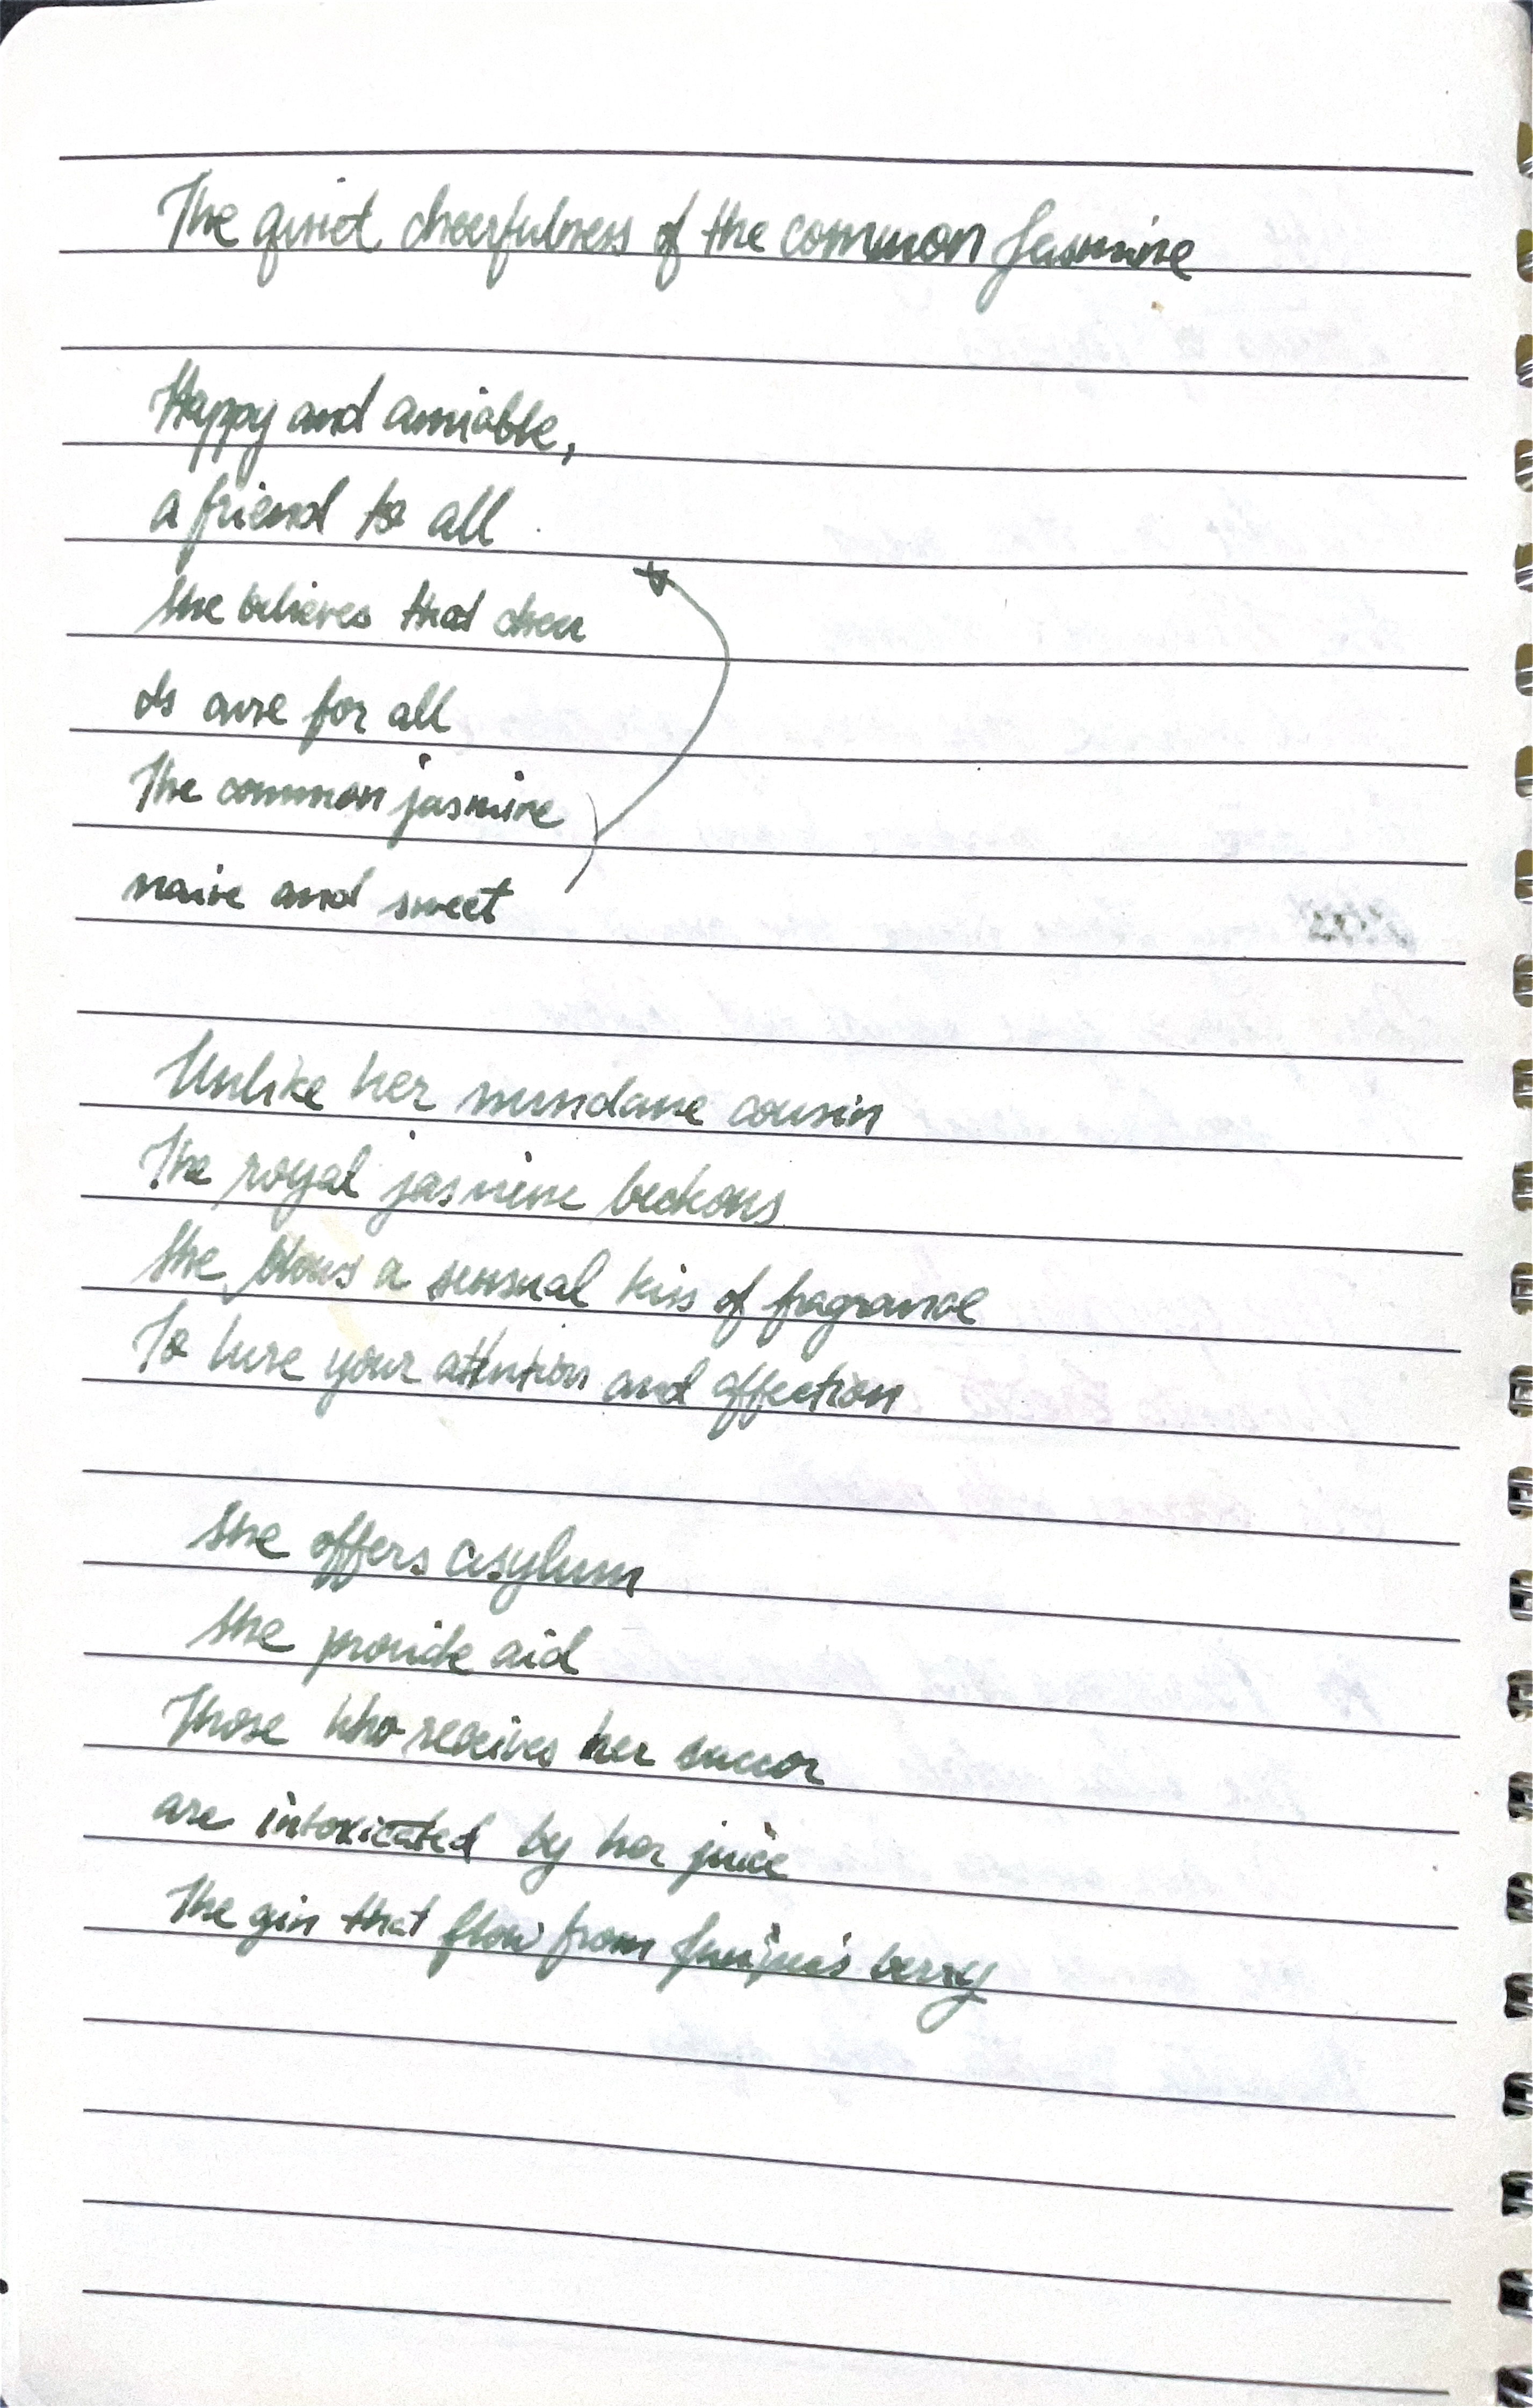 The quiet cheerfulness of the common Jasmine
Happy and amiable,
a friend to all
She believes that cheer
Is cure for all
The common jasmine
naive and sweet
Unlike her mundane cousin
The royal jasmine beckons
She blows a sensual kiss of fragrance
To lure your attention and affection
She offers asylum
She provide aid
Those who receives her succor
are intoxicated by her juice
The gin that flow from berry